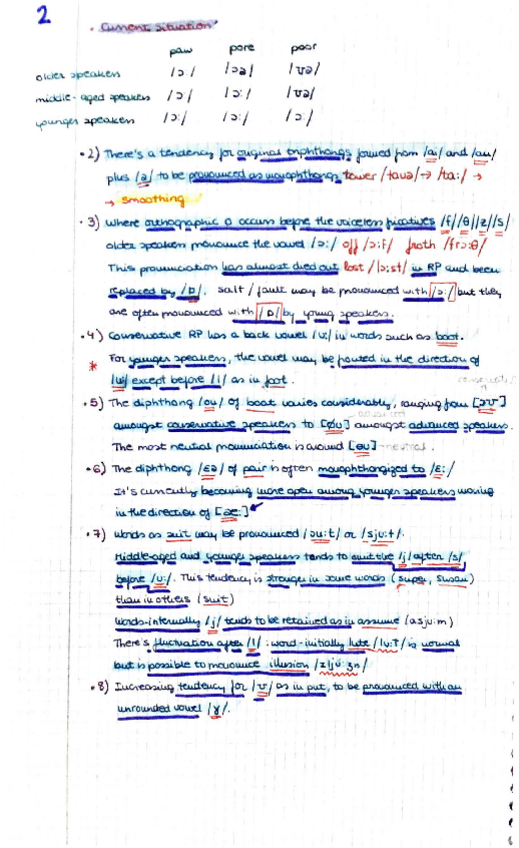 2
. Current situation
paw pore poor
older speakers /ɔ:/ /ɔə/ /ʊə/
middle-aged speakers /ɔ:/ /ɔ:/ /ʊə/
younger speakers /ɔ:/ /ɔ:/ /ɔ:/
·2) There's a tendency for original triphthongs formed from /ai/ and /au/
plus /ə/ to be pronounced as monophthongs tower /tauə/→ /ta:/ →
→ smoothing
·3) Where orthographic o occurs before the voiceless fricatives /f/ /θ/ /z/ /s/
older speakers pronounce the vowel /ɔ:/ off /ɔ:f/ froth /frɔ:θ/
This pronunciation has almost died out lost /lɔ:st/ in RP and been
replaced by /ɒ/. salt / fault may be pronounced with /ɔ:/ but they
are often pronounced with /ɒ/ by young speakers.
·4) Conservative RP has a back vowel /u:/ in words such as boot.
* For younger speakers, the vowel may be fronted in the direction of
/ʉ/ except before /l/ as in fool.
·5) The diphthong /əu/ of boat varies considerably, ranging from [ɔʊ]
amongst conservative speakers to [øʊ] amongst advanced speakers.
The most neutral pronunciation is around [əʊ] - neutral.
·6) The diphthong /ɛə/ of pair is often monophthongized to /ɛ:/
It's currently becoming more open among younger speakers moving
in the direction of [æ:]
·7) Words as suit may be pronounced /su:t/ or /sju:t/.
Middle-aged and younger speakers tends to omit the /j/ after /s/
before /u:/. This tendency is stronger in some words (super, Susan)
than in others (suit)
Words-internally /j/ tends to be retained as in assume (əsju:m)
There's fluctuation after /l/: word-initially lute /lu:t/ is normal
but is possible to pronounce illusion /ɪljʊ:ʒn/
·8) Increasing tendency for /ʊ/ as in put, to be pronounced with an
unrounded vowel /ɣ/.